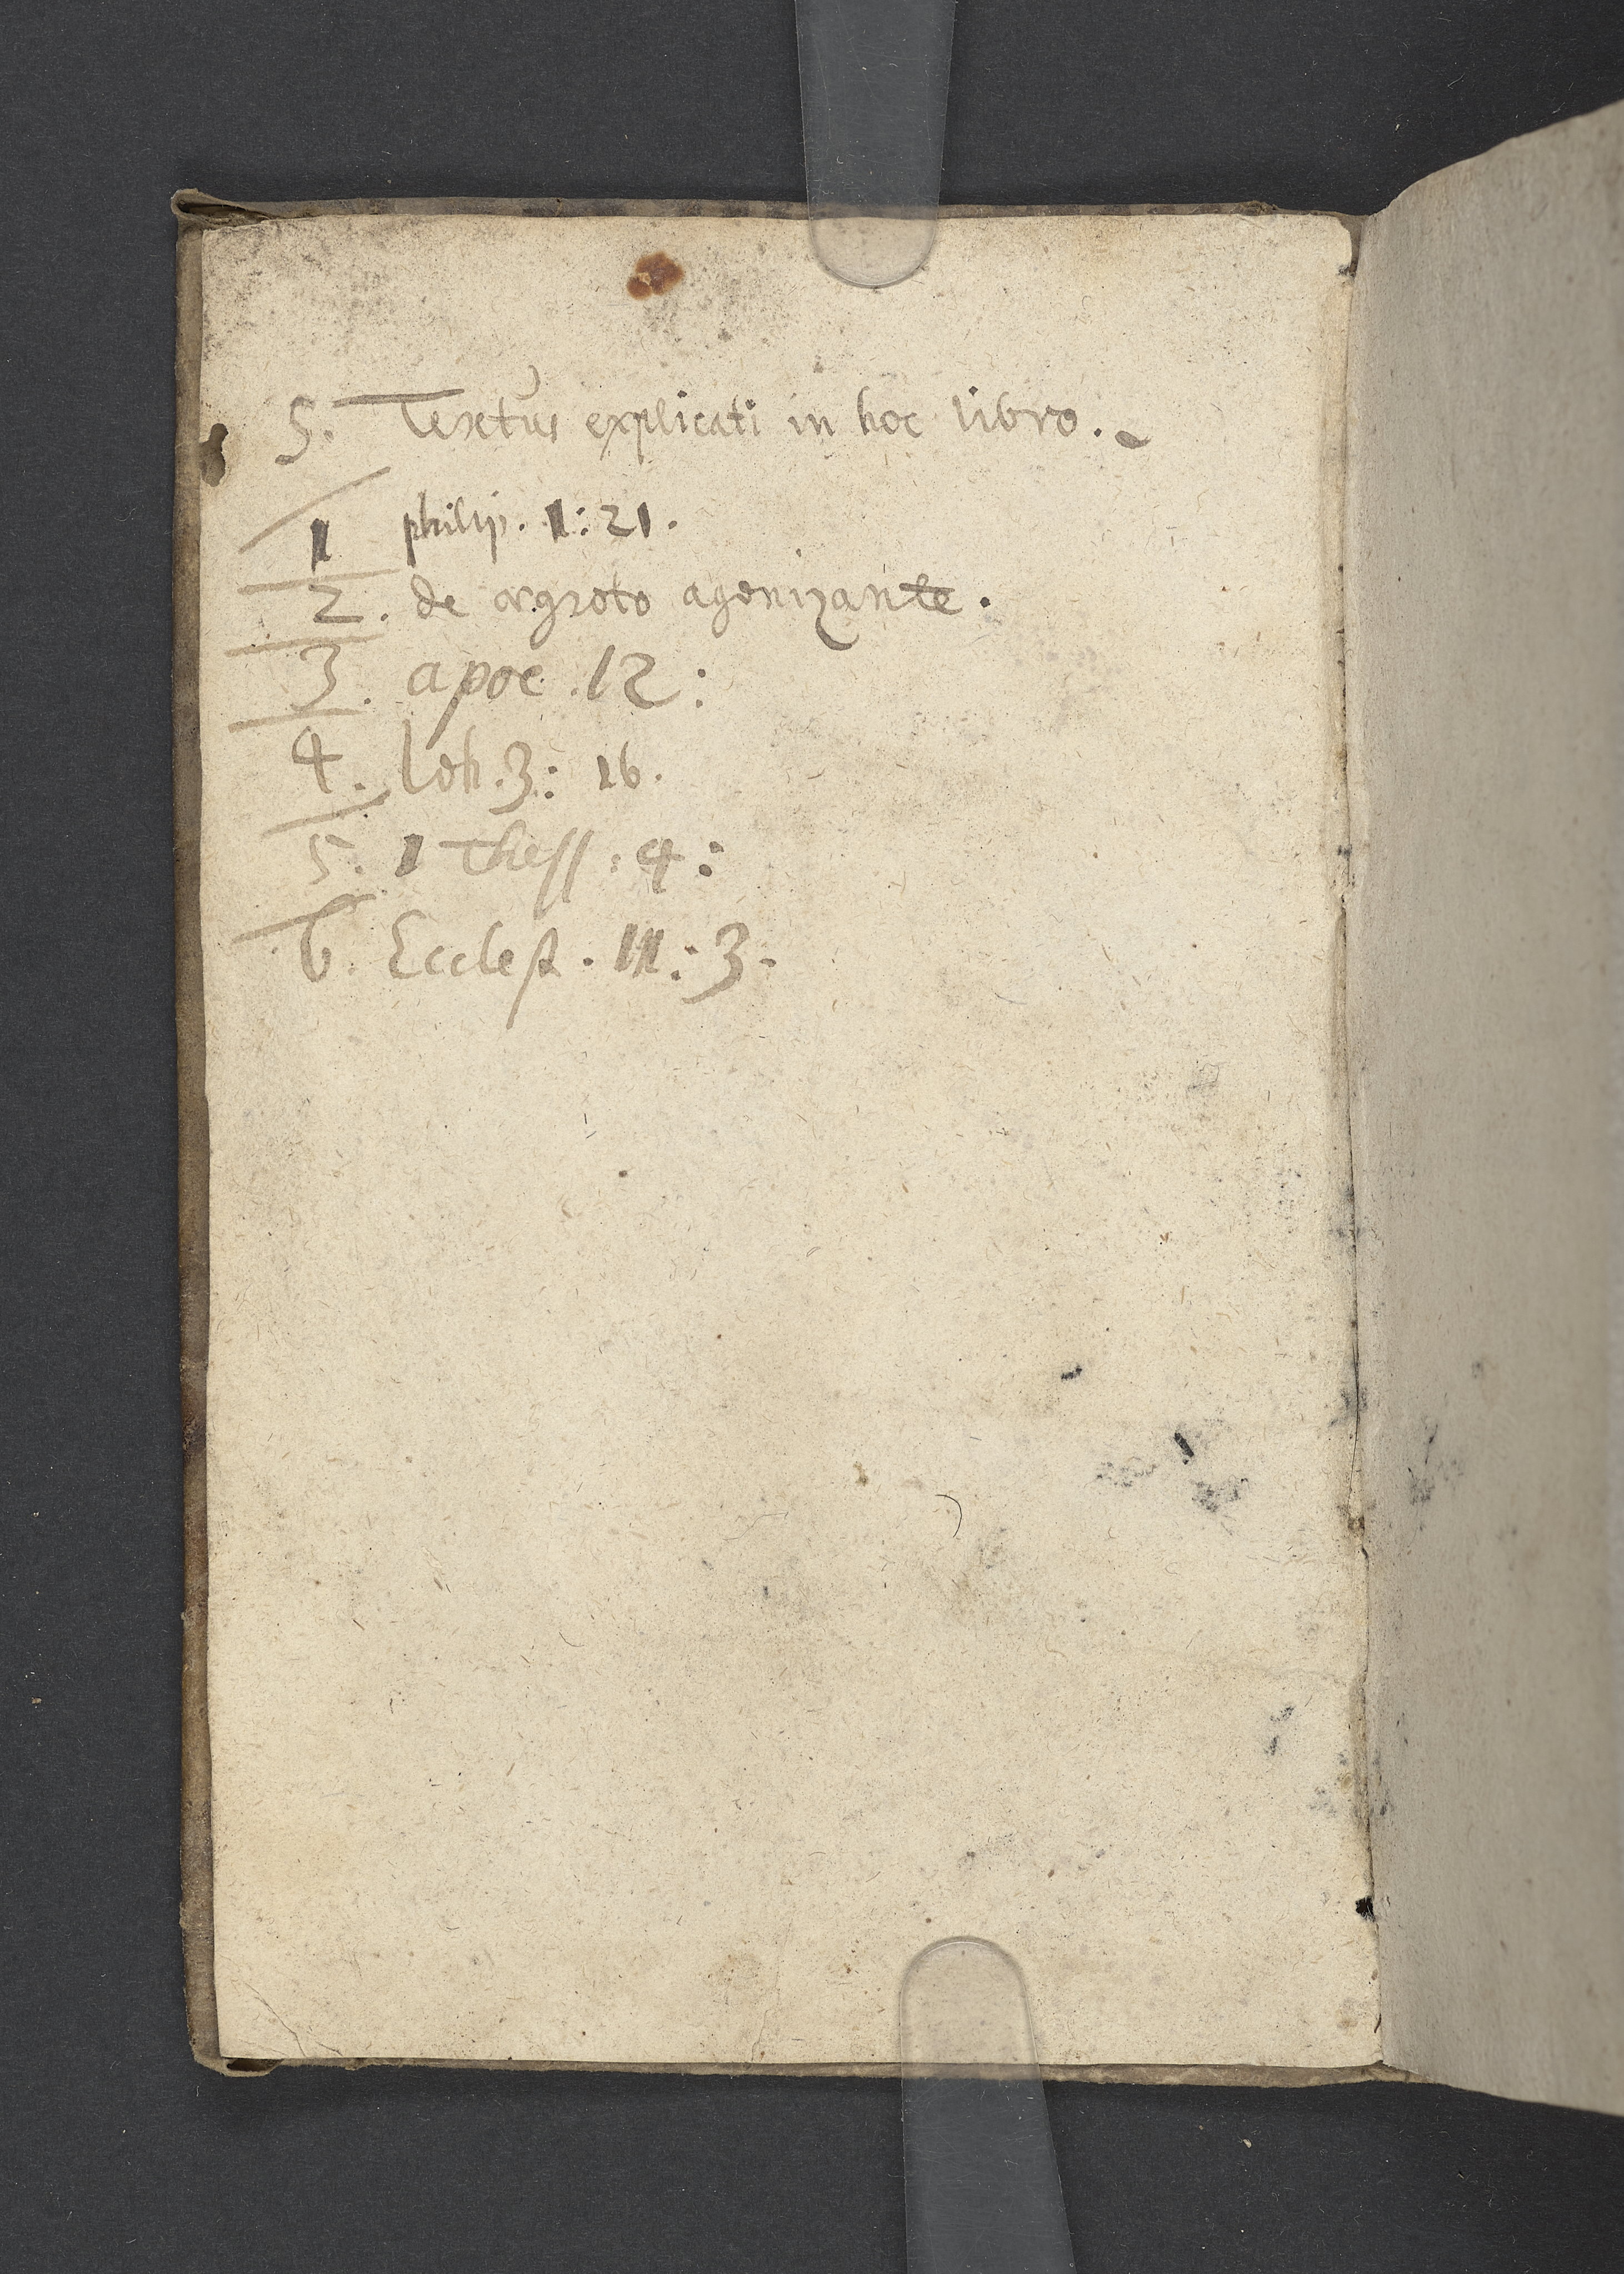 5. Textus explicati in hoc libro.
1 philip. 1:21.
2. de ægroto agonizante.
3. apoc. 12:
4. Ioh. 3: 16.
5. 1 Thess: 4:
6. Eccles. III: 3: